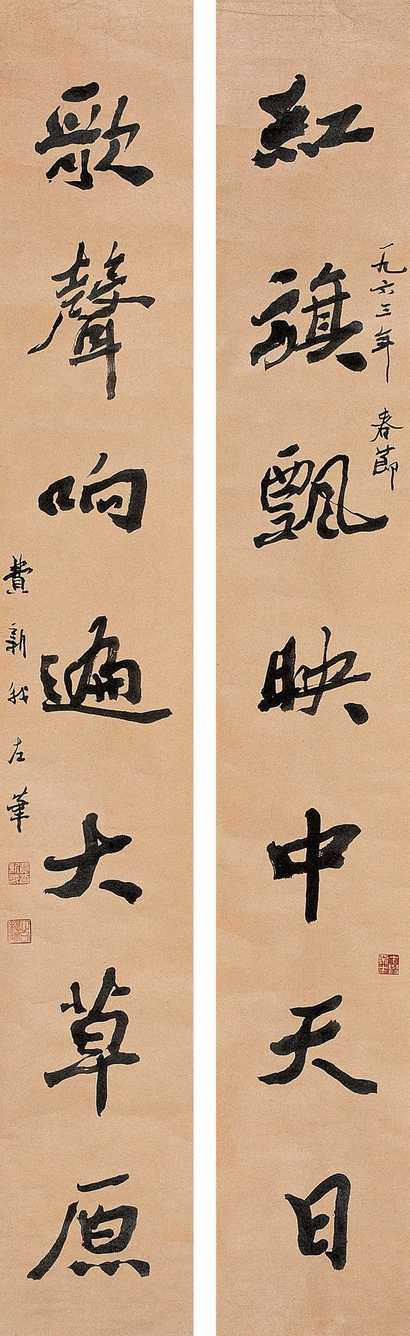 一九六三年 春節
紅旗飄映中天日
歌聲响遍大草原
費新我左筆